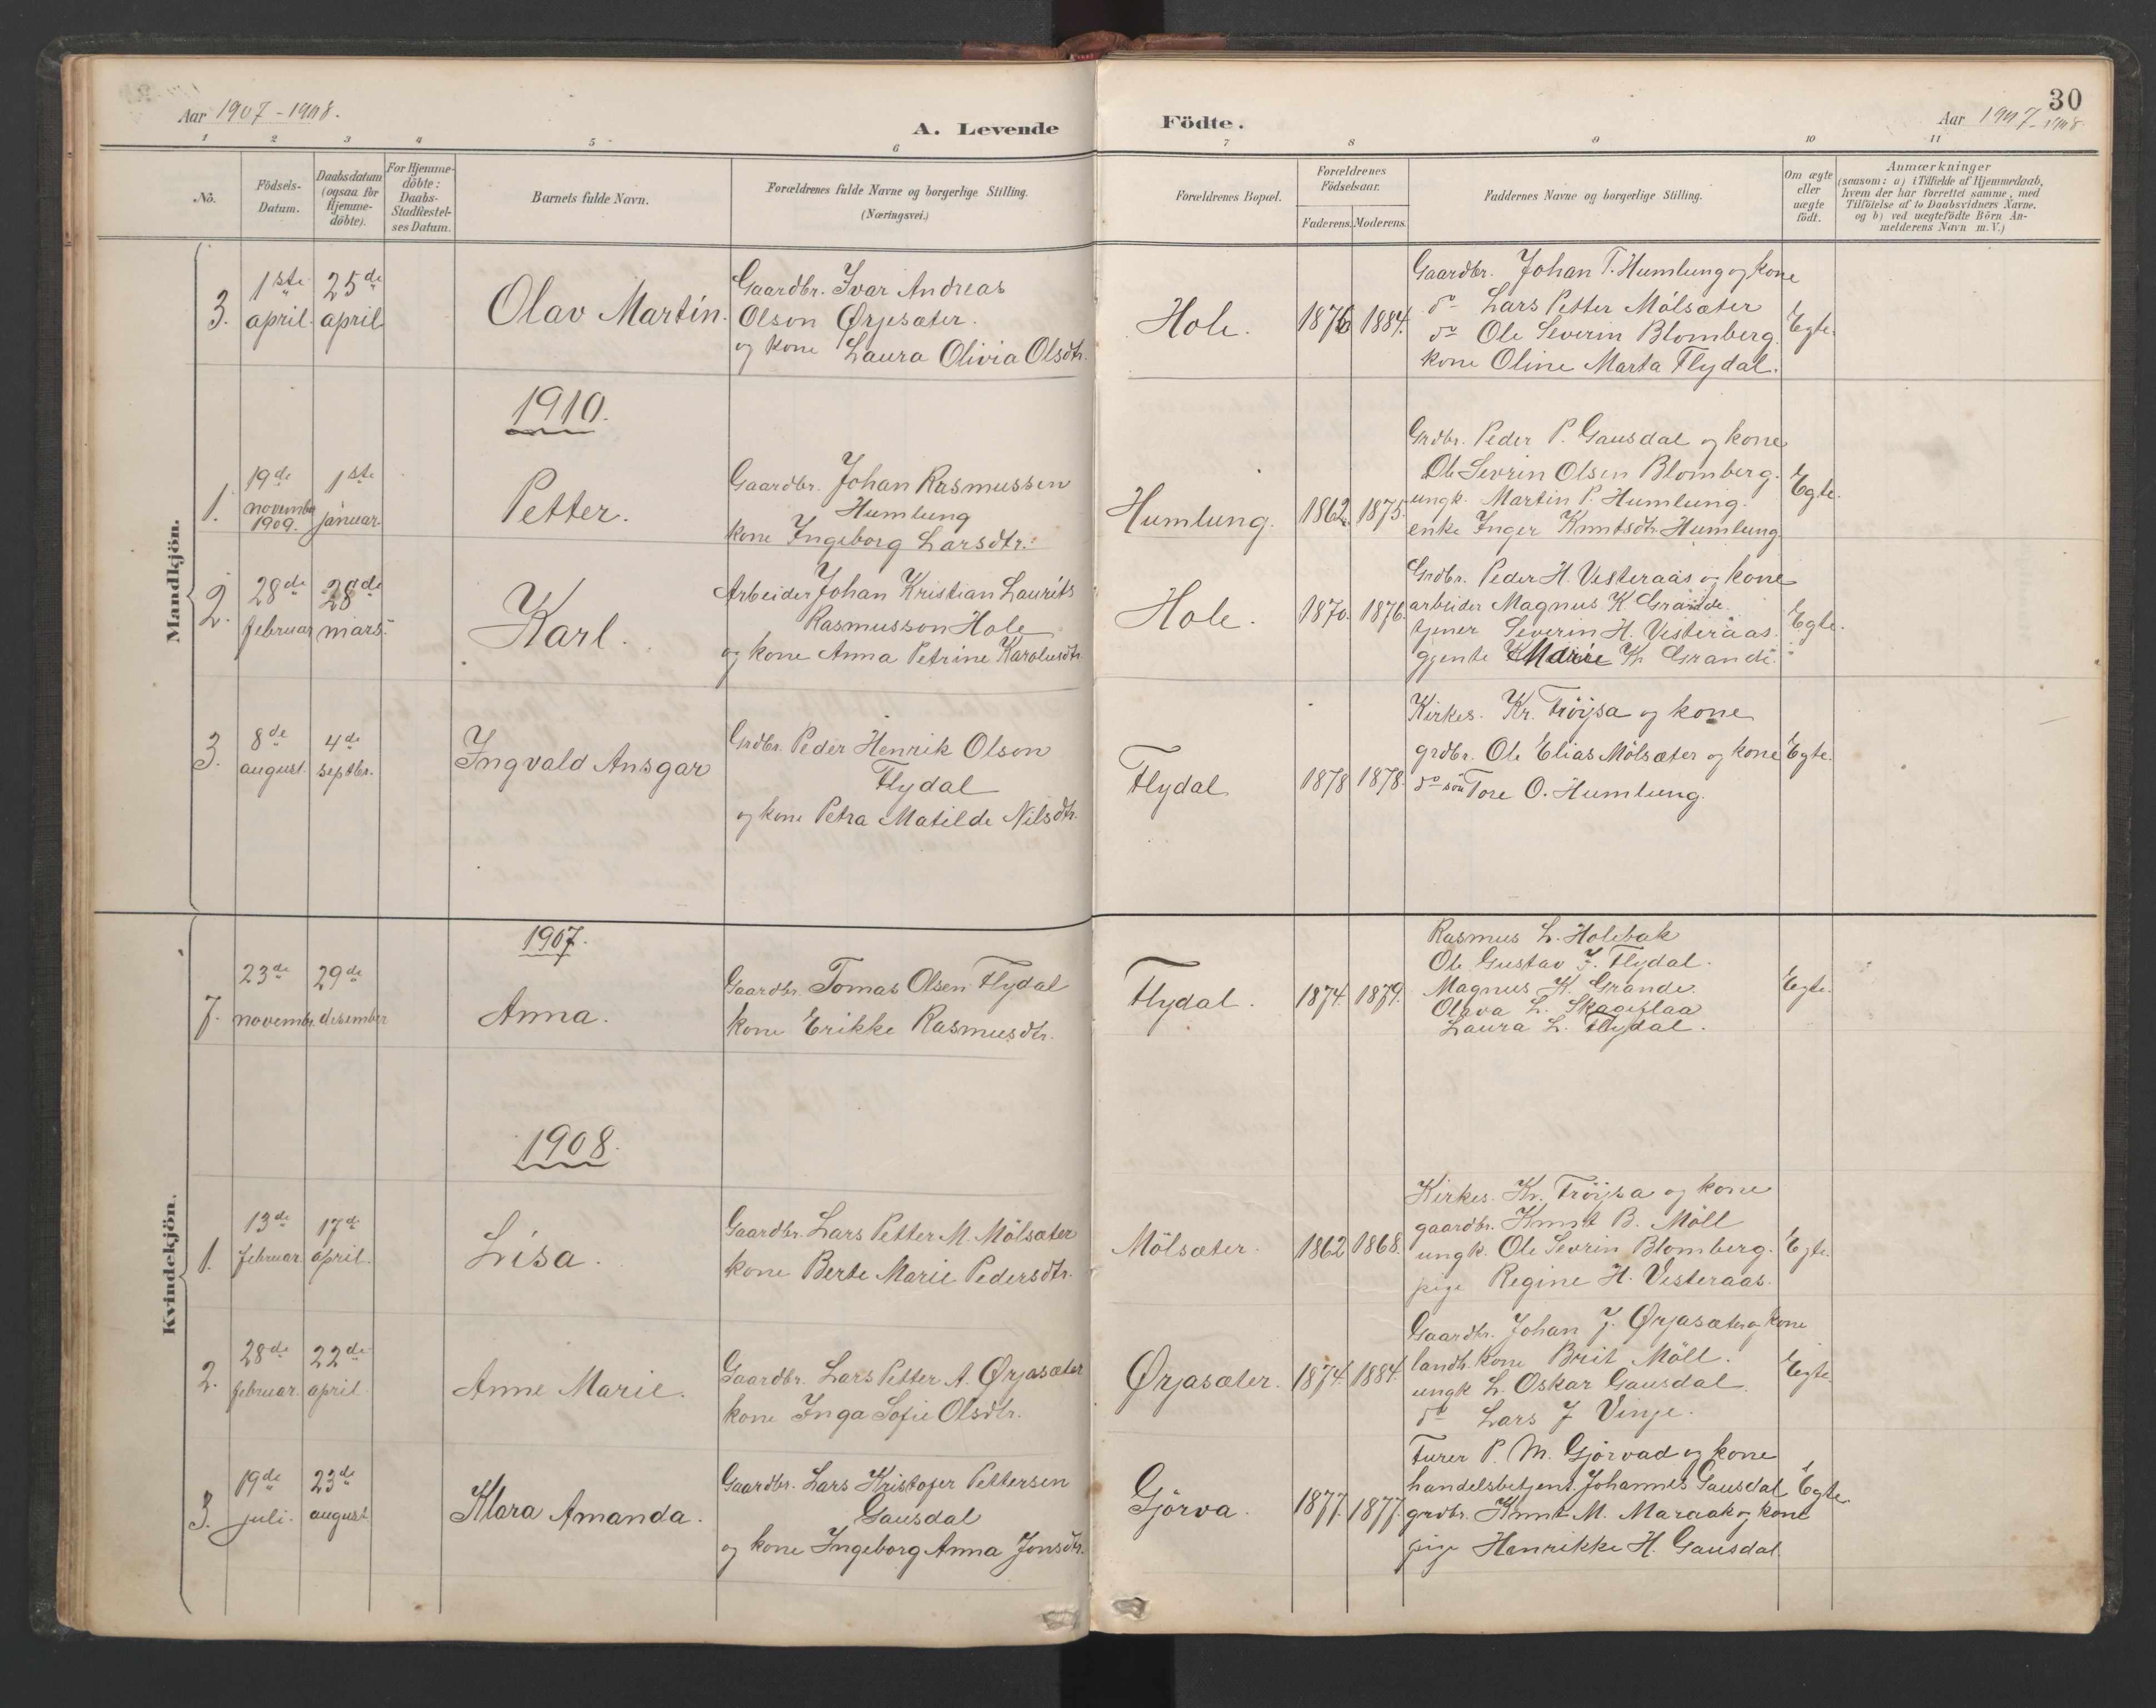 30
Aar 1907-1908.
A. Levende Födte.
Aar 1907-1908
1 2 3 4 5 6 7 8 9 10 11
No.
Födsels-
Datum.
Daabsdatum
(ogsaa for
Hjemme-
döbte).
For Hjemme-
döbte:
Daabs-
Stadfæstel-
ses Datum.
Barnets fulde Navn.
Forældrenes fulde Navne og borgerlige Stilling.
(Næringsvei.)
Forældrenes Bopæl.
Forældrenes
Födselsaar.
Faderens. Moderens.
Faddernes Navne og borgerlige Stilling.
Om ægte
eller
uægte
födt.
Anmærkninger
(saasom: a) i Tilfælde af Hjemmedaab,
hvem der har forrettet samme, med
Tilföielse af to Daabsvidners Navne,
og b) ved uægtefödte Börn An-
melderens Navn m. V.)
Mandkjön.
3.
1ste
april.
25de
april
Olav Martin.
Gaardbr. Ivar Andreas
Olson Ørjesæter.
og kone Laura Olivia Olsdtr.
Hole.
1876 1884.
Gaardbr. Johan T. Humlung og kone
do Lars Petter Mölsæter
do Ole Severin Blomberg.
kone Oline Marta Flydal.
Egte.
1910.
1.
19de
november
1909.
1ste
januar.
Petter.
Gaardbr. Johan Rasmussen
Humlung
kone Ingeborg Larsdtr.
Humlung.
1862. 1875.
Grdbr. Peder P. Gausdal og kone
Ole Sevrin Olsen Blomberg.
ungk. Martin P. Humlung.
enke Inger Knutsdtr. Humlung.
Egte.
2.
28de
februar
28de
mars.
Karl.
Arbeider Johan Kristian Laurits
Rasmusson Hole
og kone Anna Petrine Karolusdtr.
Hole.
1870. 1876.
Grdbr. Peder H. Vesteraas og kone
arbeider Magnus K. Grande.
tjener Severin H. Vesteraas.
gjente Marie K. Grande.
Egte.
3.
8de
august.
4de
septbr.
Ingvald Ansgar
Grdbr. Peder Henrik Olson
Flydal
og kone Petra Matilde Nilsdtr.
Flydal
1878 1878.
Kirkes. Kr. Tröysa og kone
grdbr. Ole Elias Mölsæter og kone
do sön Tore O. Humlung.
Egte.
Kvindekjön.
1907.
7.
23de
novembr.
29de
desember
Anna.
Gaardbr. Tomas Olsen Flydal
kone Erikke Rasmusdtr.
Flydal.
1874. 1879.
Rasmus L. Holebak
Ole Gustav J. Flydal.
Magnus K. Grande
Olava L. Skageflaa
Laura L. Flydal.
Egte.
1908.
1.
13de
februar.
17de
april.
Lisa.
Gaardbr. Lars Petter M. Mölsæter
kone Berte Marie Pedersdtr.
Mölsæter.
1862 1868.
Kirkes. Kr. Tröysa og kone
gaardbr. Knut B. Möll
ungk. Ole Sevrin Blomberg.
pige Regine H. Vesteraas.
Egte.
2.
28de
februar.
22de
april.
Anne Marie.
Gaardbr. Lars Petter A. Ørjasæter
kone Inga Sofie Olsdtr.
Ørjasæter.
1874. 1884.
Gaardbr. Johan J. Ørjasæter og kone
landh. kone Brit Möll.
ungk L. Oskar Gausdal.
do Lars J Vinje.
Egte.
3.
19de
juli.
23de
august.
Klara Amanda.
Gaardbr. Lars Kristofer Pettersen
Gausdal
og kone Ingeborg Anna Jonsdtr.
Gjörva.
1877. 1877.
Furer P. M. Gjörvad og kone
handelsbetjent. Johannes Gausdal
grdbr. Knut M. Maraak og kone
pige Henrikke H. Gausdal.
Egte.